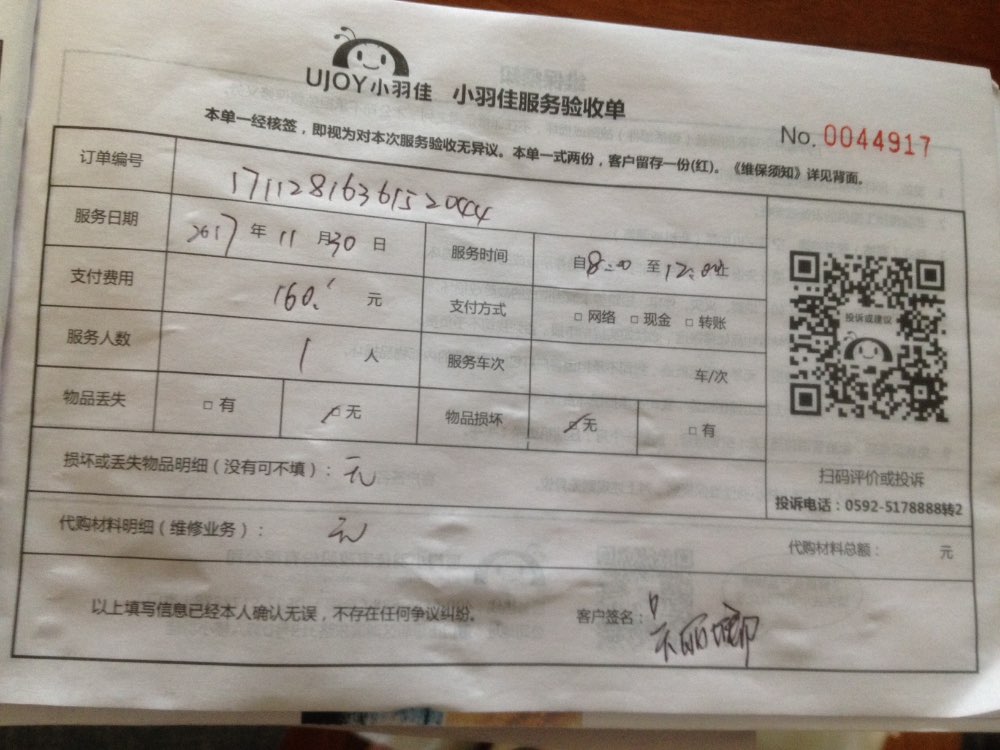 UJOY小羽佳 小羽佳服务验收单
No. 0044917
本单一经核签，即视为对本次服务验收无异议。本单一式两份，客户留存一份(红)。《维保须知》详见背面。
订单编号
服务日期 2017 年 11 月 30 日 服务时间 自 8:00 至 12:00止
支付费用 160. 元 支付方式 □ 网络 □ 现金 □ 转账
服务人数 1 人 服务车次 车/次
物品丢失 □ 有 □ 无 物品损坏 □ 无 □ 有
投诉或建议
扫码评价或投诉
投诉电话：0592-5178888转2
损坏或丢失物品明细（没有可不填）： 无
代购材料明细（维修业务）： 无
代购材料总额： 元
以上填写信息已经本人确认无误，不存在任何争议纠纷。 客户签名： 吴丽娜